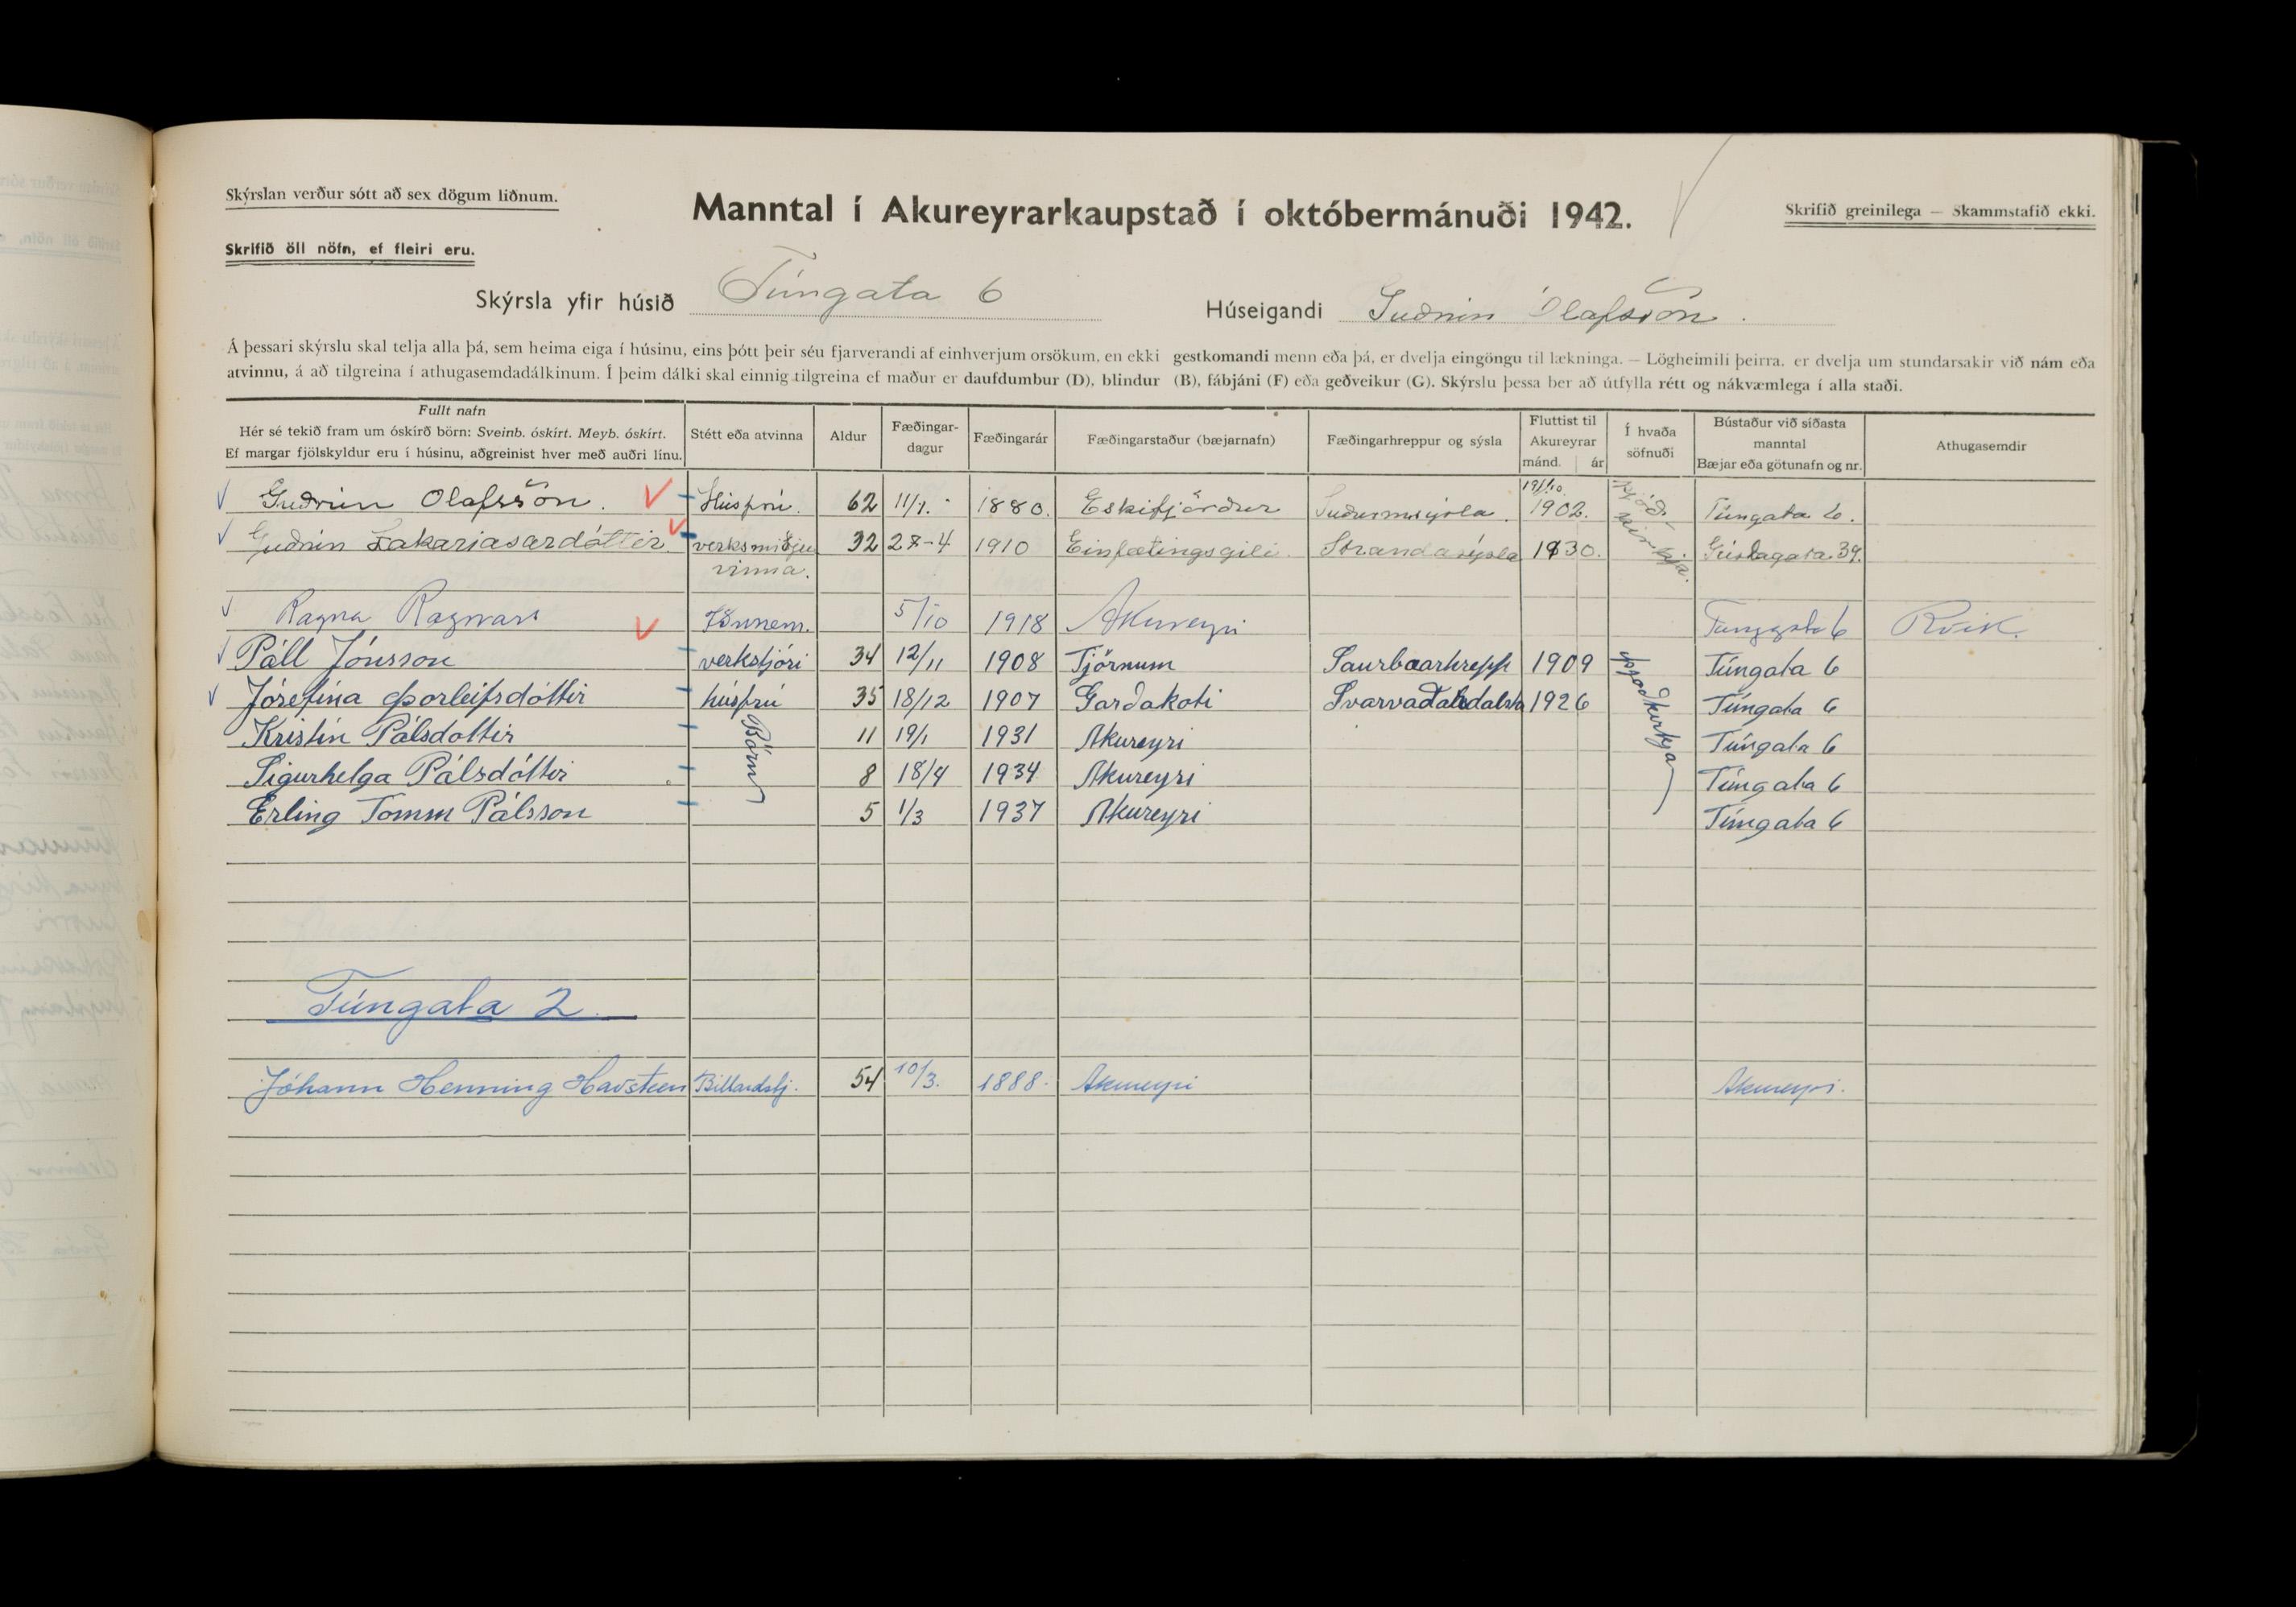 Skýrslan verður sótt að sex dögum liðnum.
Manntal í Akureyrarkaupstað í októbermánuði 1942.
Skrifið greinilega — Skammstafið ekki.
Skrifið öll nöfn, ef fleiri eru.
Skýrsla yfir húsið Túngata 6 Húseigandi Guðrún Olafsson.
Á þessari skýrslu skal telja alla þá, sem heima eiga í húsinu, eins þótt þeir séu fjarverandi af einhverjum orsökum, en ekki gestkomandi menn eða þá, er dvelja eingöngu til lækninga. — Lögheimili þeirra, er dvelja um stundarsakir við nám eða
atvinnu, á að tilgreina í athugasemdadálkinum. Í þeim dálki skal einnig tilgreina ef maður er daufdumbur (D), blindur (B), fábjáni (F) eða geðveikur (G). Skýrslu þessa ber að útfylla rétt og nákvæmlega í alla staði.
Fullt nafn
Hér sé tekið fram um óskírð börn: Sveinb. óskírt. Meyb. óskírt.
Ef margar fjölskyldur eru í húsinu, aðgreinist hver með auðri línu.
Stétt eða atvinna
Aldur
Fæðingar-
dagur
Fæðingarár
Fæðingarstaður (bæjarnafn)
Fæðingarhreppur og sýsla
Fluttist til
Akureyrar
mánd. ár
Í hvaða
söfnuði
Bústaður við síðasta
manntal
Bæjar eða götunafn og nr.
Athugasemdir
Guðrún Olafsson. Húsfrú. 62 11/7. 1880. Eskifjörður Suðurmúsýsla. 1902. Þjóð- Túngata 6.
Guðrún Zakaríasardóttir verksmiðju 32 28-4 1910 Einfætingsgili. Strandasýsla 1930. kirkja. 39.
vinna.
Ragna Ragnars 5/10 1918 Akureyri Tungata 6 Rvík.
Páll Jónsson verkstjóri 34 12/11 1908 Tjörnum Saurbæarhrepp 1909 Þjóðkirkja Túngata 6
Jósefína Þorleifsdóttir húsfrú 35 18/12 1907 Garðakoti 1926 Túngata 6
Kristín Pálsdóttir Börn 11 19/1 1931 Akureyri Túngata 6
Sigurhelga Pálsdóttir 8 18/4 1934 Akureyri Túngata 6
Erling Tomm Pálsson 5 1/3 1937 Akureyri Túngata 6
Túngata 2.
Jóhann Henning Havsteen Billardstj. 54 10/3. 1888. Akureyri Akureyri.